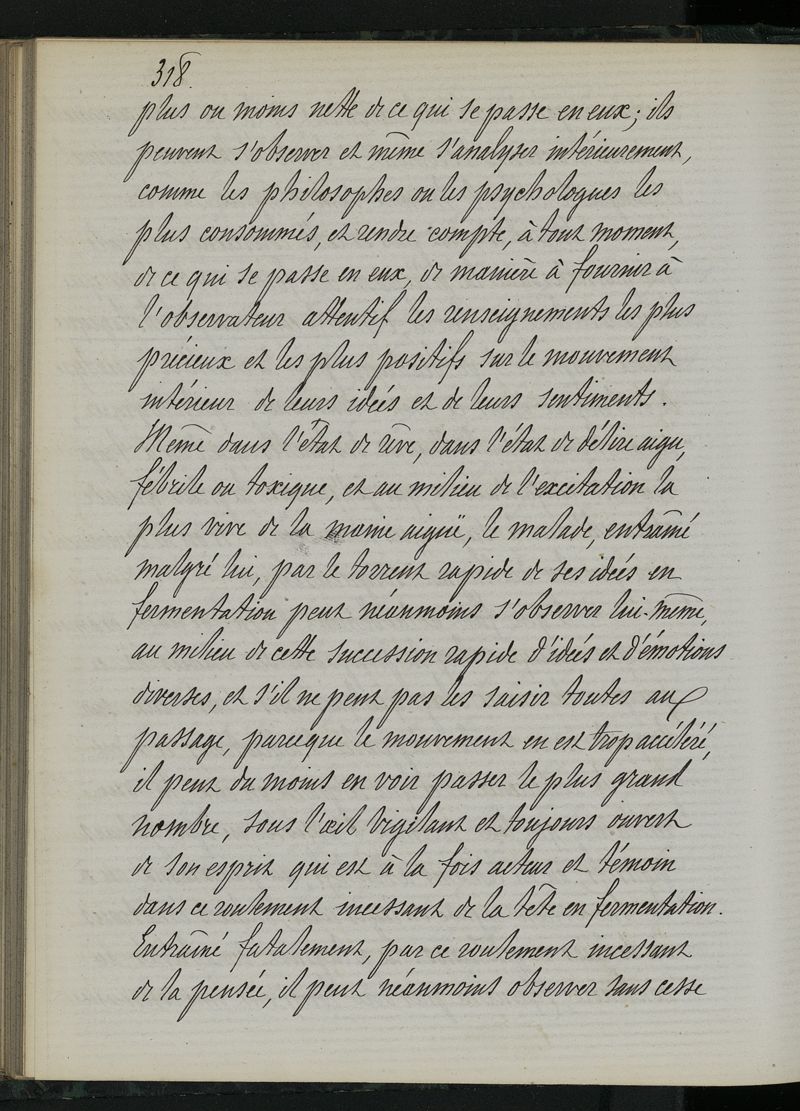 318.
plus ou moins nette de ce qui se passe en eux; ils
peuvent s'observer et même s'analyser intérieurement,
comme les philosophes ou les psychologues les
plus consommés, et rendre compte, à tout moment,
de ce qui se passe en eux, de manière à fournir à
l'observateur attentif les renseignements les plus
précieux et les plus positifs sur le mouvement
intérieur de leurs idées et de leurs sentiments.
Même dans l'état de rêve, dans l'état de délire aigu,
fébrile ou toxique, et au milieu de l'excitation la
plus vive de la manie aiguë, le malade, entraîné
malgré lui, par le torrent rapide de ses idées en
fermentation peut néanmoins s'observer lui-même,
au milieu de cette succession rapide d'idées et d'émotions
diverses, et s'il ne peut pas les saisir toutes au
passage, parceque le mouvement en est trop accéléré,
il peut du moins en voir passer le plus grand
nombre, sous l'œil vigilant et toujours ouvert
de son esprit qui est à la fois acteur et témoin
dans ce roulement incessant de la tête en fermentation.
Entraîné fatalement, par ce roulement incessant
de la pensée, il peut néanmoins observer sans cesse